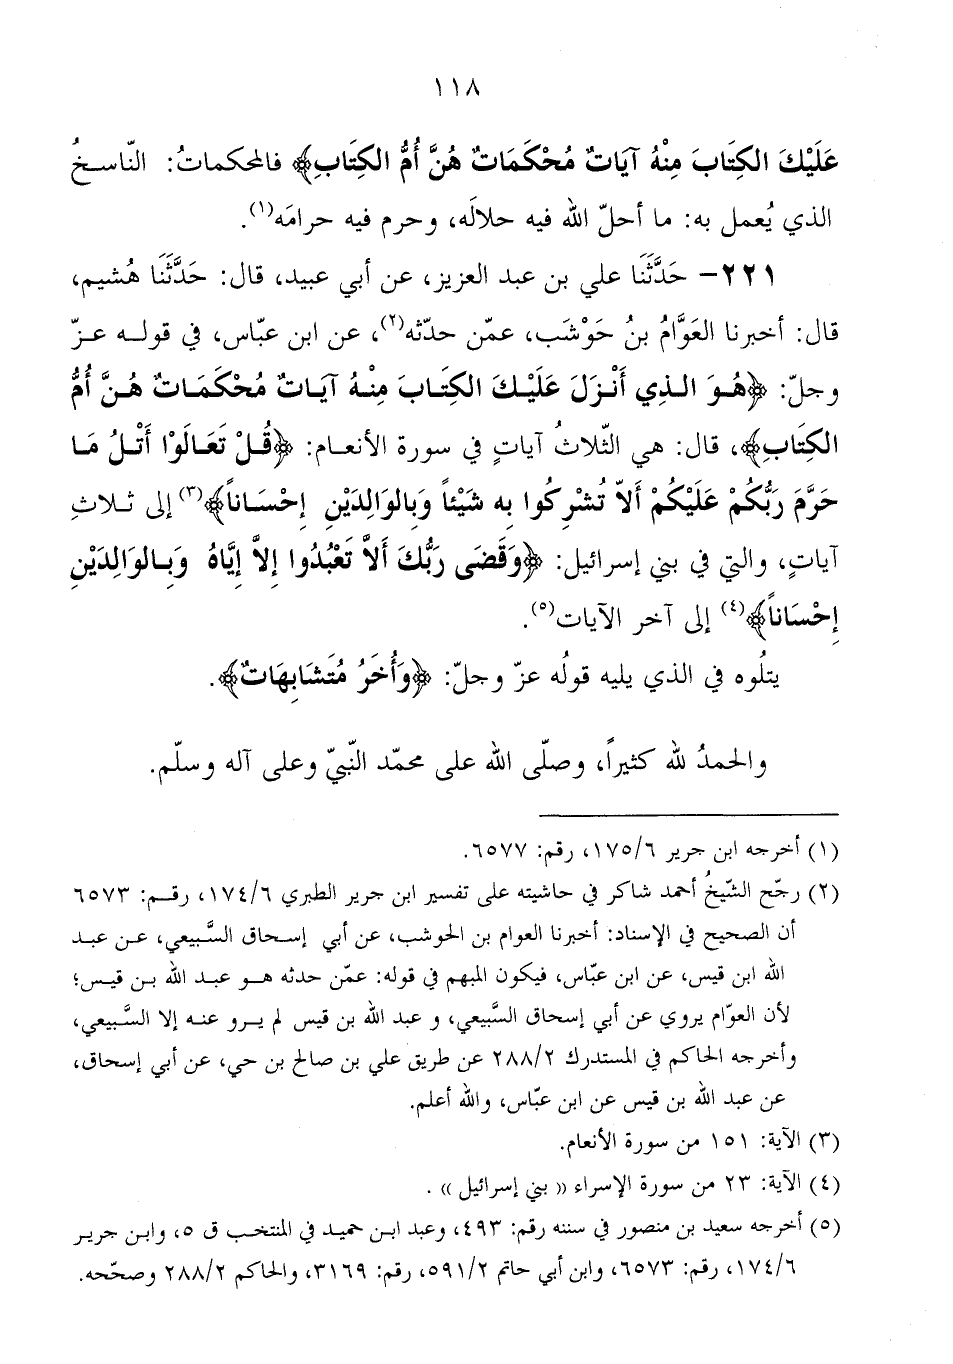 ١١٨
عَلَيْكَ الكِتَابَ مِنْهُ آيَاتٌ مُحْكَمَاتٌ هُنَّ أُمُّ الكِتَابِ﴾ فالمحكماتُ: النّاسخُ
الذي يُعمل به: ما أحلّ الله فيه حلالَه، وحرم فيه حرامَه(١).
٢٢١– حَدَّثَنَا علي بن عبد العزيز، عن أبي عبيد، قال: حَدَّثَنَا هُشيم،
قال: أخبرنا العَوَّامُ بنُ حَوْشَب، عمّن حدّثه(٢)، عن ابن عبّاس، في قوله عزّ
وجلّ: ﴿هُوَ الذِي أَنْزَلَ عَلَيْكَ الكِتَابَ مِنْهُ آيَاتٌ مُحْكَمَاتٌ هُنَّ أُمُّ
الكِتَابِ﴾، قال: هي الثّلاثُ آياتٍ في سورة الأنعام: ﴿قُلْ تَعَالَوْا أَتْلُ مَا
حَرَّمَ رَبُّكُمْ عَلَيْكُمْ أَلاّ تُشْرِكُوا به شَيْئاً وَبِالوَالِدَيْنِ إِحْسَاناً﴾(٣) إلى ثلاثِ
آياتٍ، والتي في بني إسرائيل: ﴿وَقَضَى رَبُّكَ أَلاَّ تَعْبُدُوا إِلاَّ إِيَّاهُ وَبِالوَالِدَيْنِ
إِحْسَاناً﴾(٤) إلى آخر الآيات(٥).
يتلُوه في الذي يليه قولُه عزّ وجلّ: ﴿وَأُخَرُ مُتَشَابِهَاتٌ﴾.
والحمدُ لله كثيراً، وصلّى الله على محمّد النّبيّ وعلى آله وسلّم.
(١) أخرجه ابن جرير ١٧٥/٦، رقم: ٦٥٧٧.
(٢) رجّح الشّيخُ أحمد شاكر في حاشيته على تفسير ابن جرير الطبري ١٧٤/٦، رقم: ٦٥٧٣
أن الصحيح في الإسناد: أخبرنا العوام بن الحوشب، عن أبي إسحاق السَّبيعي، عن عبد
الله ابن قيس، عن ابن عبّاس، فيكون المبهم في قوله: عمّن حدثه هو عبد الله بن قيس؛
لأن العوّام يروي عن أبي إسحاق السَّبيعي، و عبد الله بن قيس لم يرو عنه إلا السَّبيعي،
وأخرجه الحاكم في المستدرك ٢٨٨/٢ عن طريق علي بن صالح بن حي، عن أبي إسحاق،
عن عبد الله بن قيس عن ابن عبّاس، والله أعلم.
(٣) الآية: ١٥١ من سورة الأنعام.
(٤) الآية: ٢٣ من سورة الإسراء « بني إسرائيل » .
(٥) أخرجه سعيد بن منصور في سننه رقم: ٤٩٣، وعبد ابن حميد في المنتخب ق ٥، وابن جرير
١٧٤/٦، رقم: ٦٥٧٣، وابن أبي حاتم ٥٩١/٢، رقم: ٣١٦٩، والحاكم ٢٨٨/٢ وصحّحه.